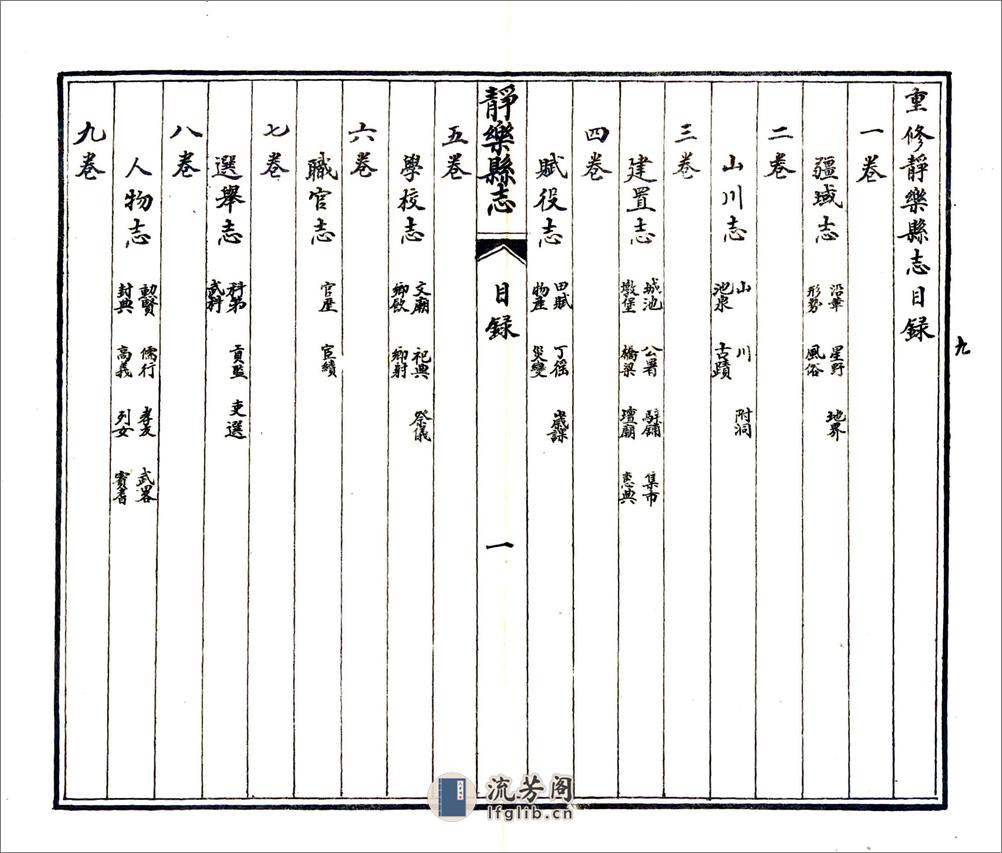 重修靜樂縣志目録
一卷
疆域志 沿革 星野 地界
形勢 風俗
二卷
山川志 山 川 附洞
池泉 古蹟
三卷
建置志 城池 公署 驛鋪 集市
墩堡 橋梁 壇廟 惠典
四卷
賦役志 田賦 丁徭 歲課
物產 災變
靜樂縣志 目録 一
五卷
學校志 文廟 祀典 祭儀
鄉飲 鄉射
六卷
職官志 官歷 宦績
七卷
選舉志 科第 貢監 吏選
武科
八卷
人物志 勳賢 儒行 孝友 武畧
封典 高義 列女
九卷
九
流芳阁
lfglib.cn